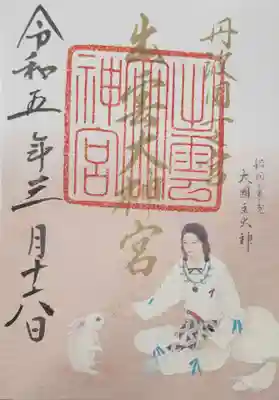 丹波國一之宮
出雲大神宮
出雲大神宮
大國主大神
令和五年三月十八日